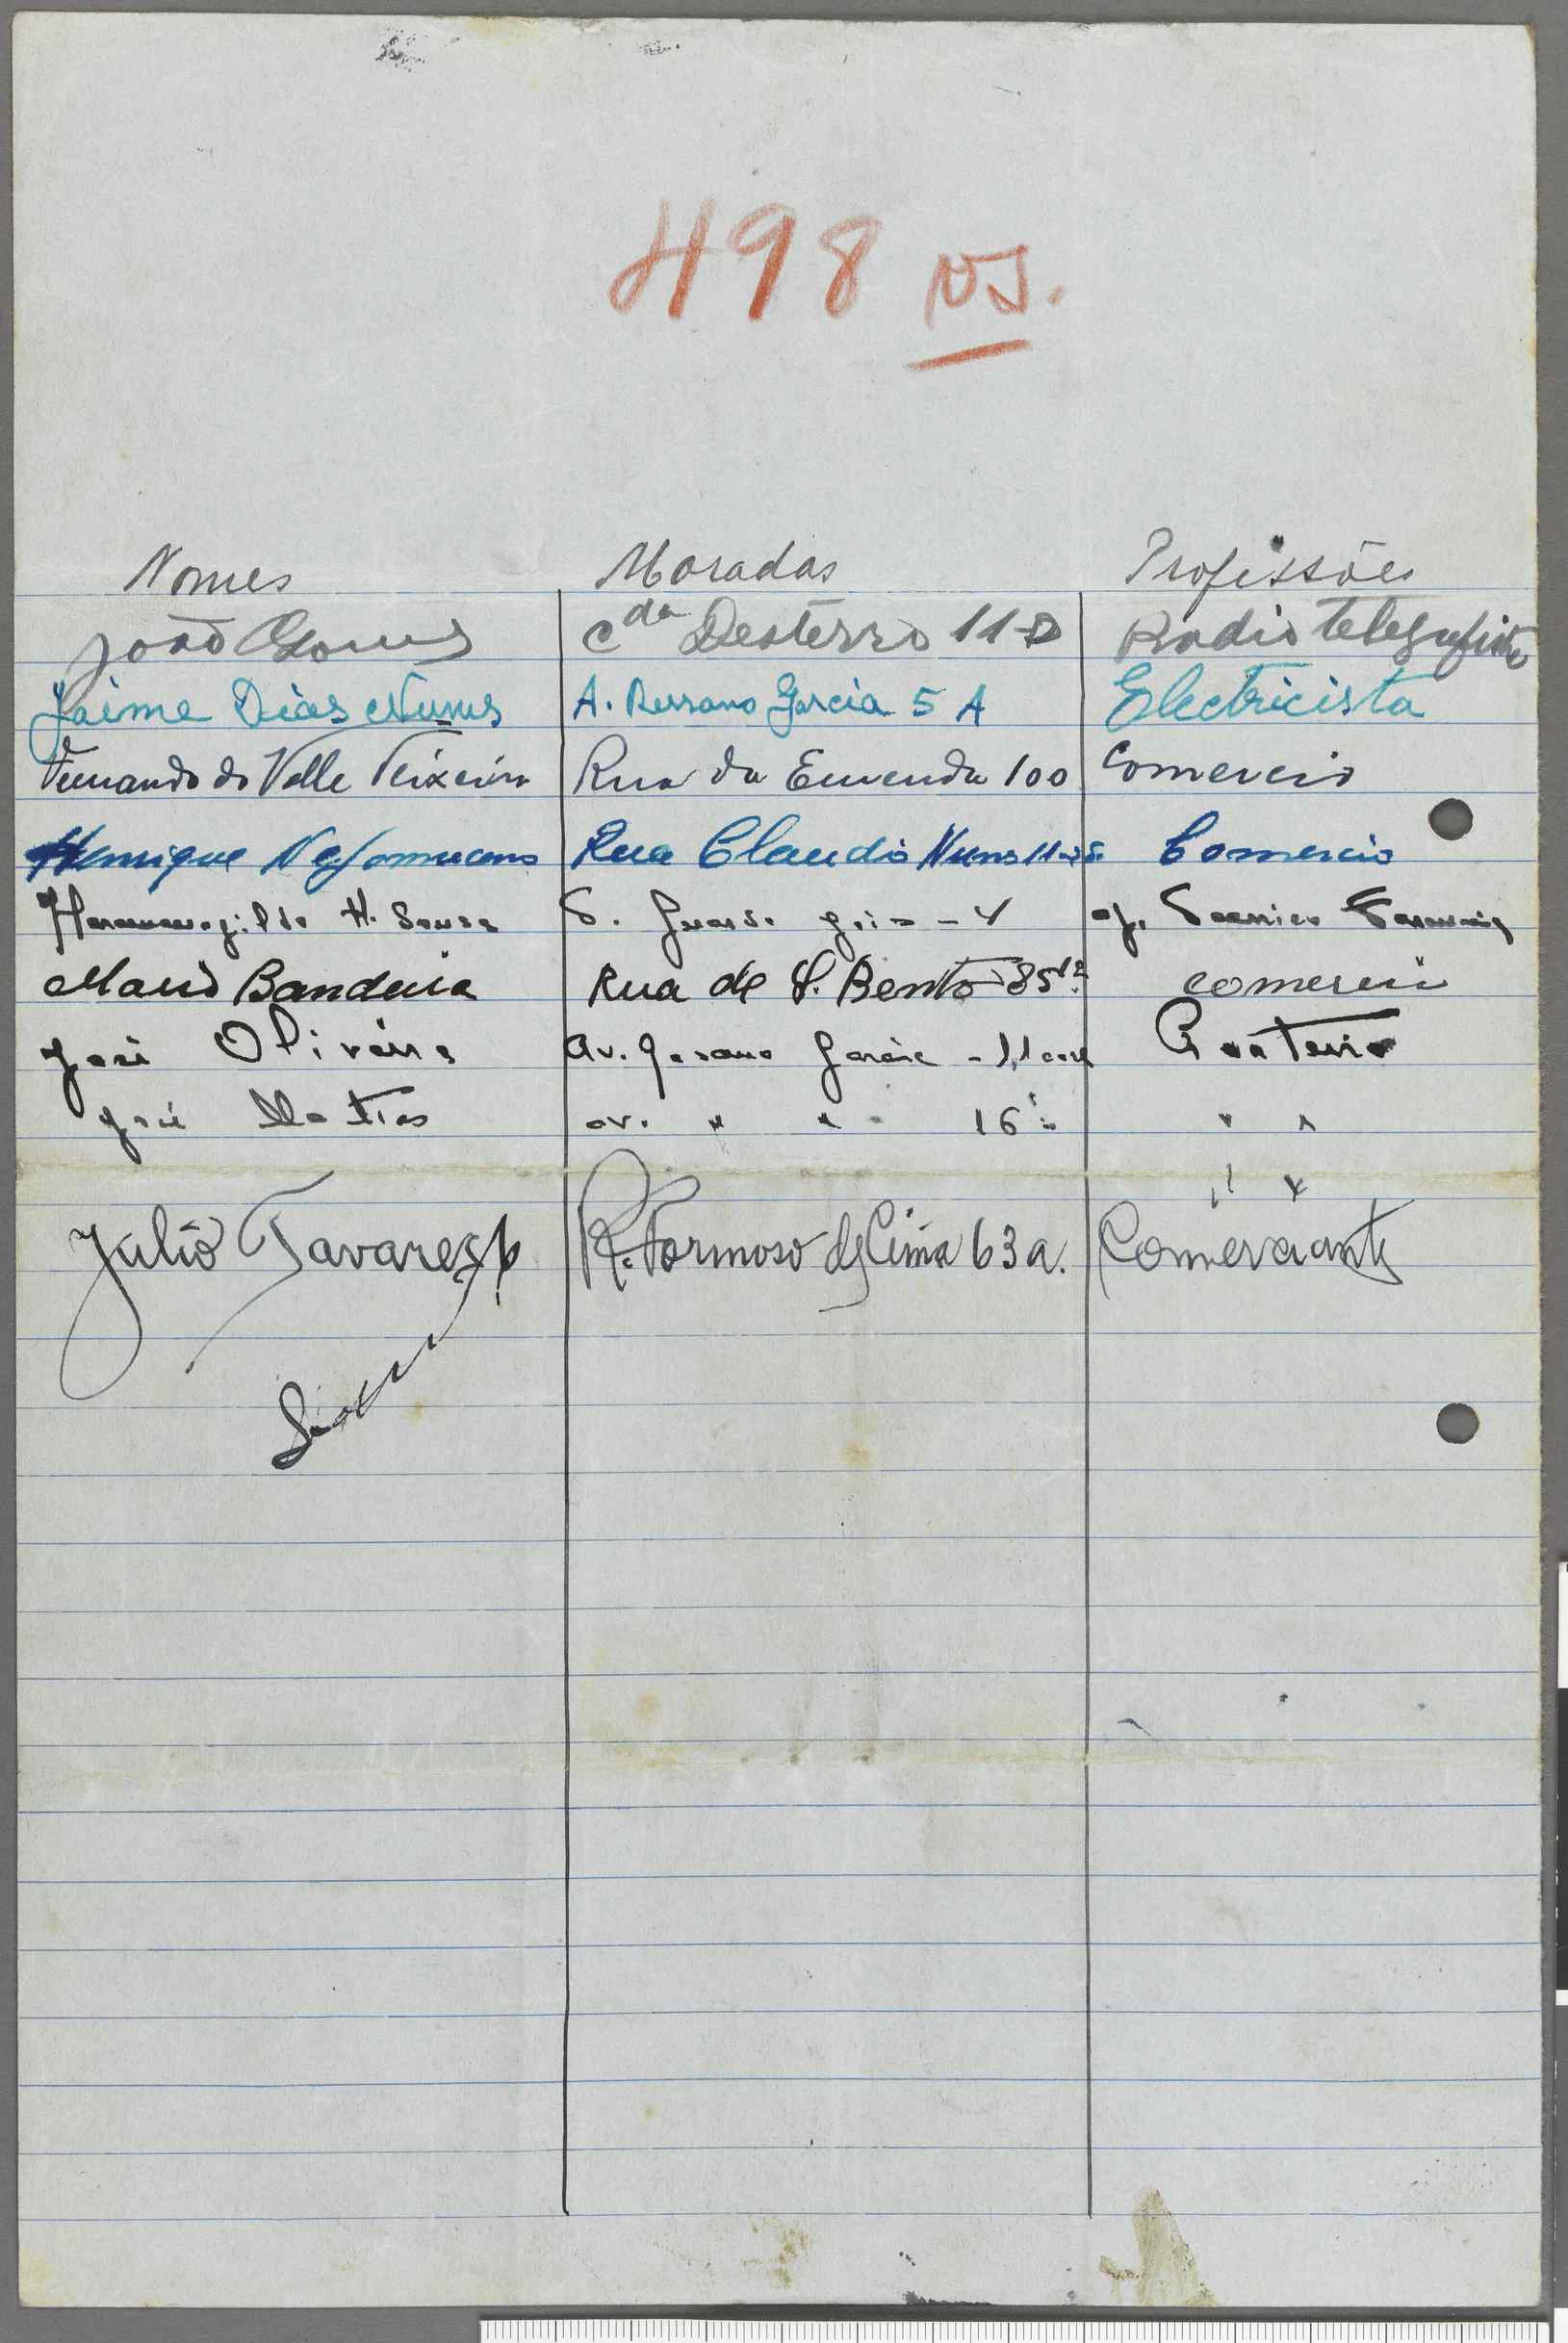 498 NS.
Nomes Moradas Profissões
João Gomes C da Desterro 11-2 Radio telegrafista
Jaime Dias Nunes A. Ressano Garcia 5 A Electricista
Fernando do Valle Teixeira Rua da Emenda 100 Comercio
Henrique Nepomuceno Rua Claudio Nunes 11 Comercio
H. Sousa T. Guarda
Mario Bandeira Rua de S. Bento 85 comercio
José Oliveira Av. Garcia
José Matias av. " " 16
Julio Tavares R. Formoso de Cima 63 a. Comerciante